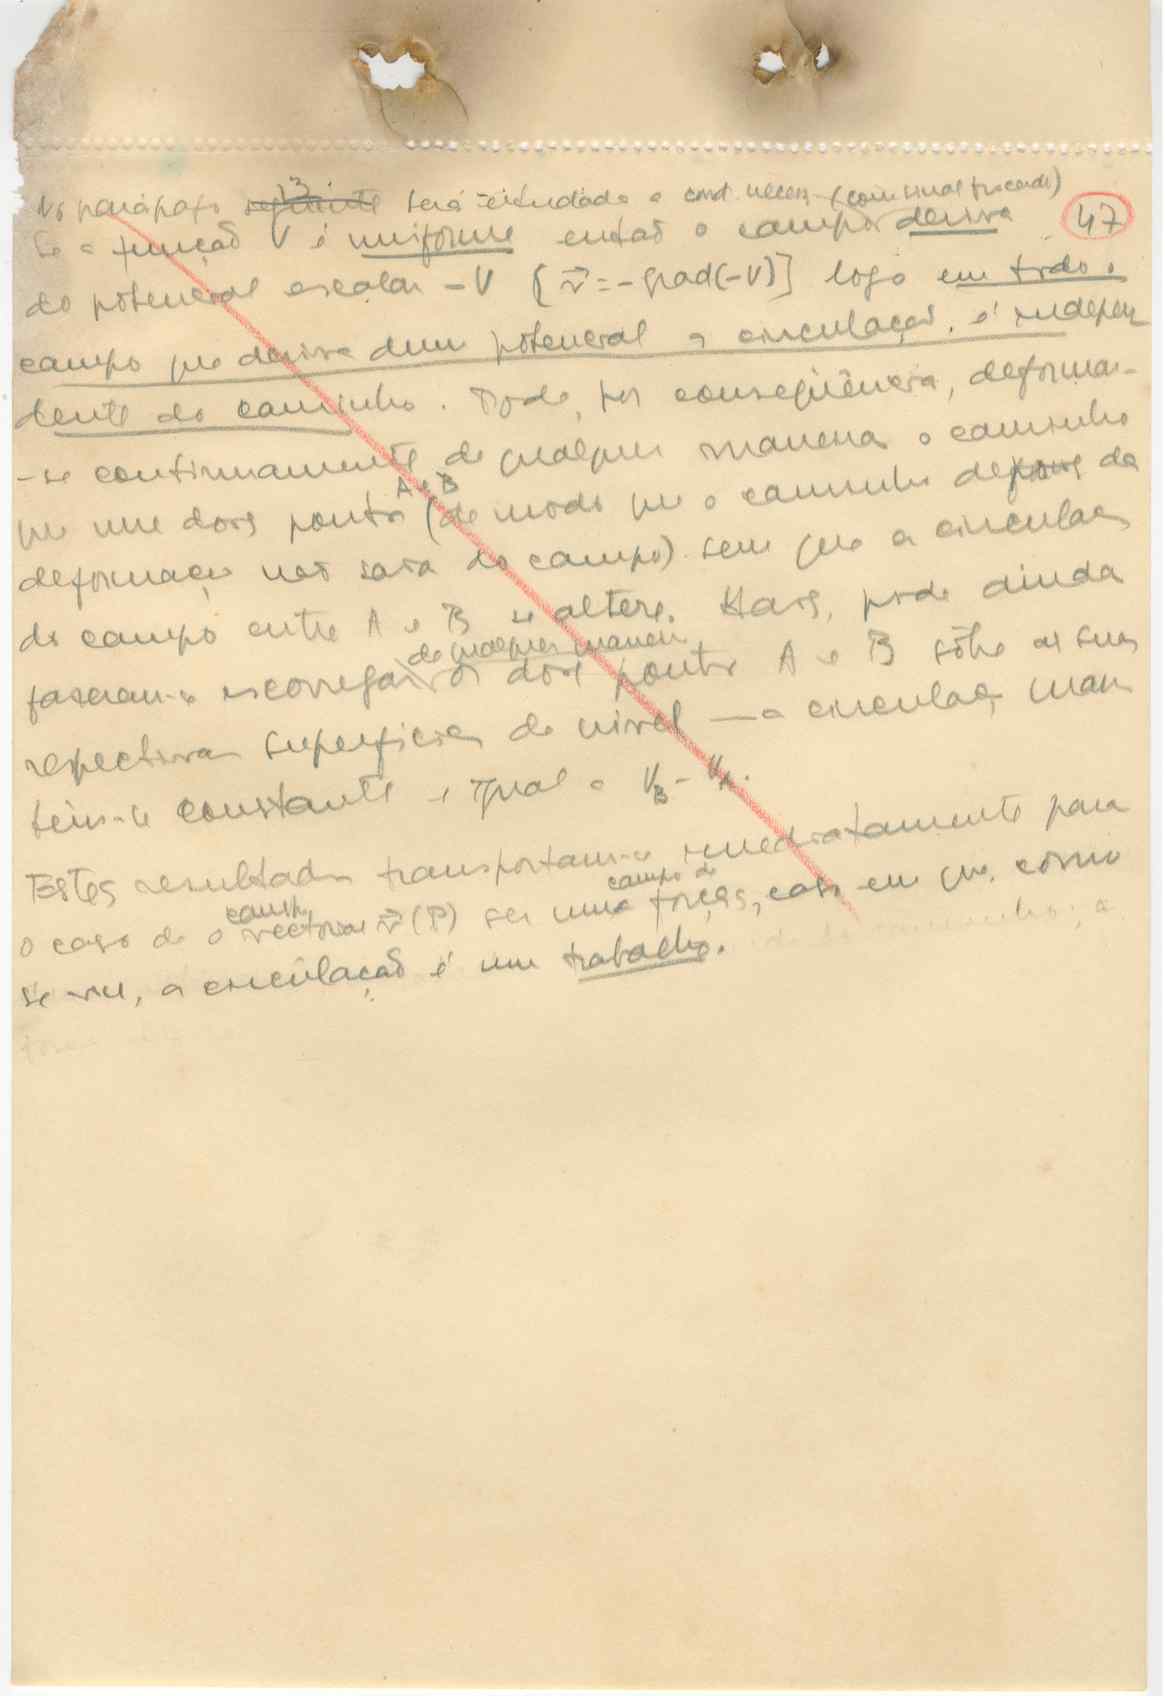 No parágrafo 13 será estudada a cond. necess. (com sinal trocado)
47
Se a função V é uniforme então o campo deriva
do potencial escalar -V [v⃗ = -grad(-V)] logo em todo o
campo que deriva dum potencial a circulação é indepen
dente do caminho. Pode, por conseqüência, deformar-
-se continuamente de qualquer maneira o caminho
que une dois pontos A e B (de modo que o caminho depois da
deformação não saia do campo) sem que a circulação
do campo entre A e B se altere. Mais, pode ainda
fazerem-se escorregar de qualquer maneira os dois pontos A e B sôbre as suas
respectivas superfícies de nível — a circulação man
tém-se constante e igual a V_B - V_A.
Estes resultados transportam-se imediatamente para
o caso de o campo vectorial v⃗(P) ser um campo de forças, caso em que, como
se viu, a circulação é um trabalho.